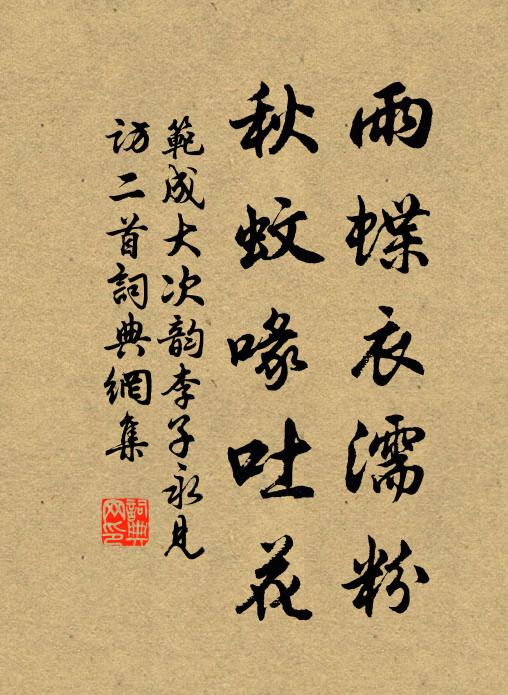 雨蝶衣濡粉
秋蚊喙吐花
範成大次韵李子永見
訪二首詞典網集
詞典
网印